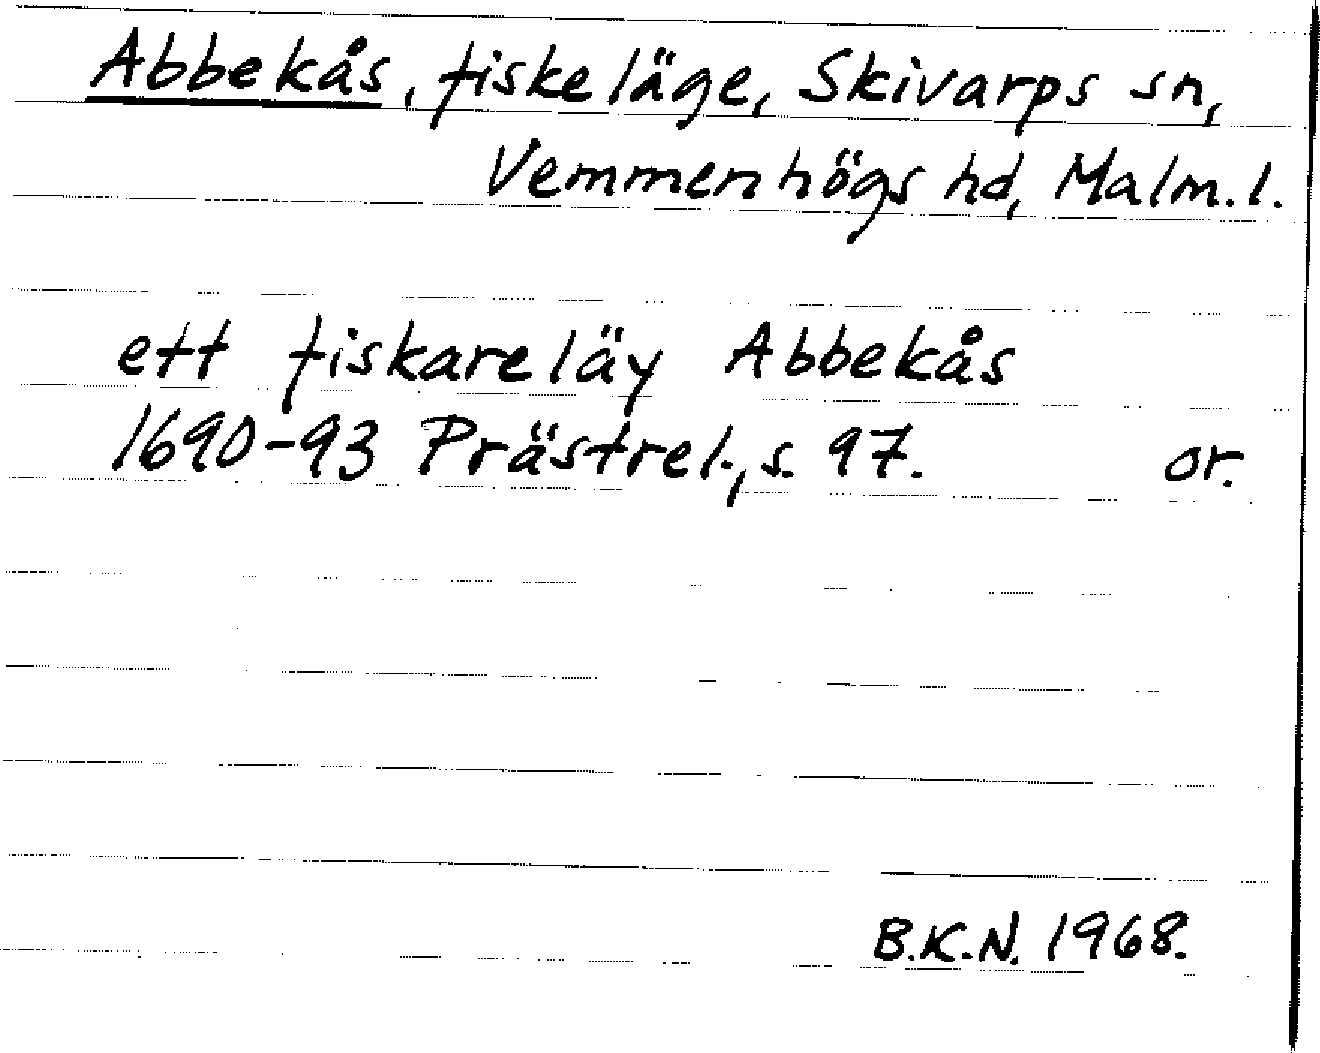 Abbekås, fiskeläge, Skivarps sn,
Vemmenhögs hd, Malm.l.
ett fiskareläy Abbekås
1690-93 Prästrel., s. 97. or.
B.K.N. 1968.